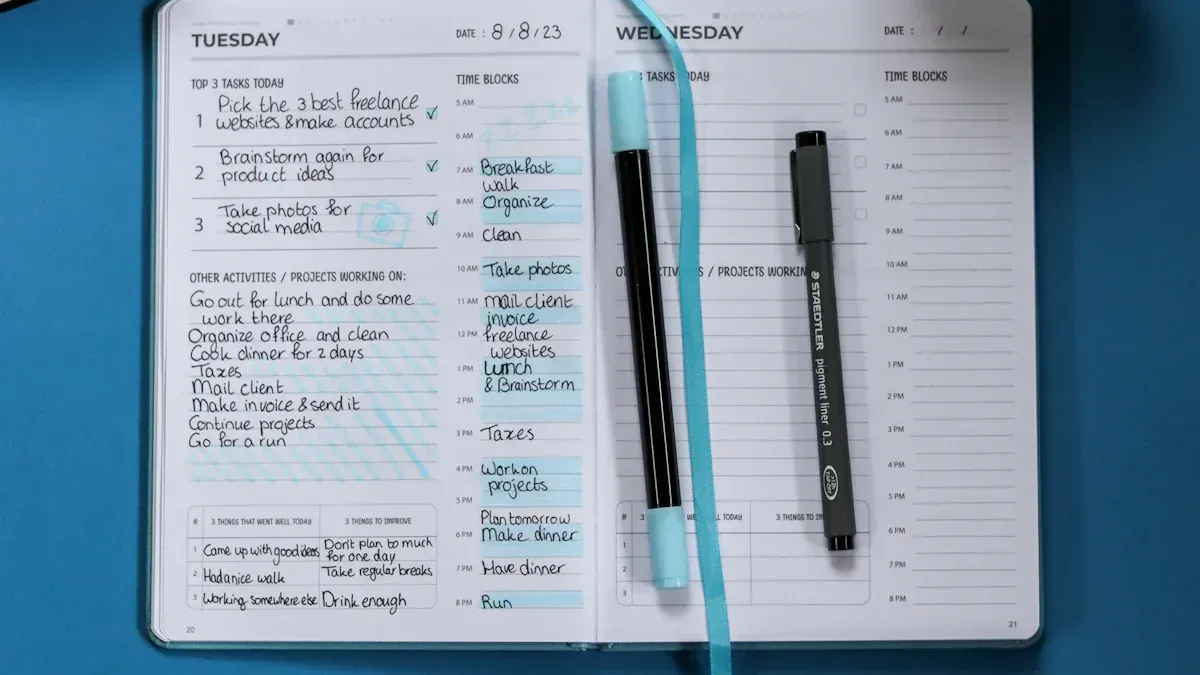 TUESDAY
DATE : 8/8/23
TOP 3 TASKS TODAY
1 Pick the 3 best freelance
websites & make accounts
2 Brainstorm again for
product ideas
3 Take photos for
social media
OTHER ACTIVITIES / PROJECTS WORKING ON:
Go out for lunch and do some
work there
Organize office and clean
Cook dinner for 2 days
Taxes
Mail client
Make invoice & send it
Continue projects
Go for a run
# 3 THINGS THAT WENT WELL TODAY 3 THINGS TO IMPROVE
1 Came up with good ideas Don't plan to much
for one day
2 Had a nice walk Take regular breaks
3 Working somewhere else Drink enough
20
TIME BLOCKS
5 AM
6 AM
7 AM Breakfast
walk
8 AM Organize
9 AM Clean
10 AM Take photos
11 AM mail client
invoice
12 PM freelance
websites
1 PM Lunch
& Brainstorm
2 PM
3 PM Taxes
4 PM Work on
projects
5 PM
Plan tomorrow
6 PM Make dinner
7 PM Have dinner
8 PM Run
WEDNESDAY
DATE : / /
3 TASKS TODAY
/ PROJECTS WORKIN
# 3 TODAY 3 THINGS TO
1
2
3
TIME BLOCKS
5 AM
6 AM
7 AM
8 AM
9 AM
10 AM
11 AM
12 PM
1 PM
2 PM
3 PM
4 PM
5 PM
6 PM
7 PM
8 PM
21
STAEDTLER pigment liner 0.3